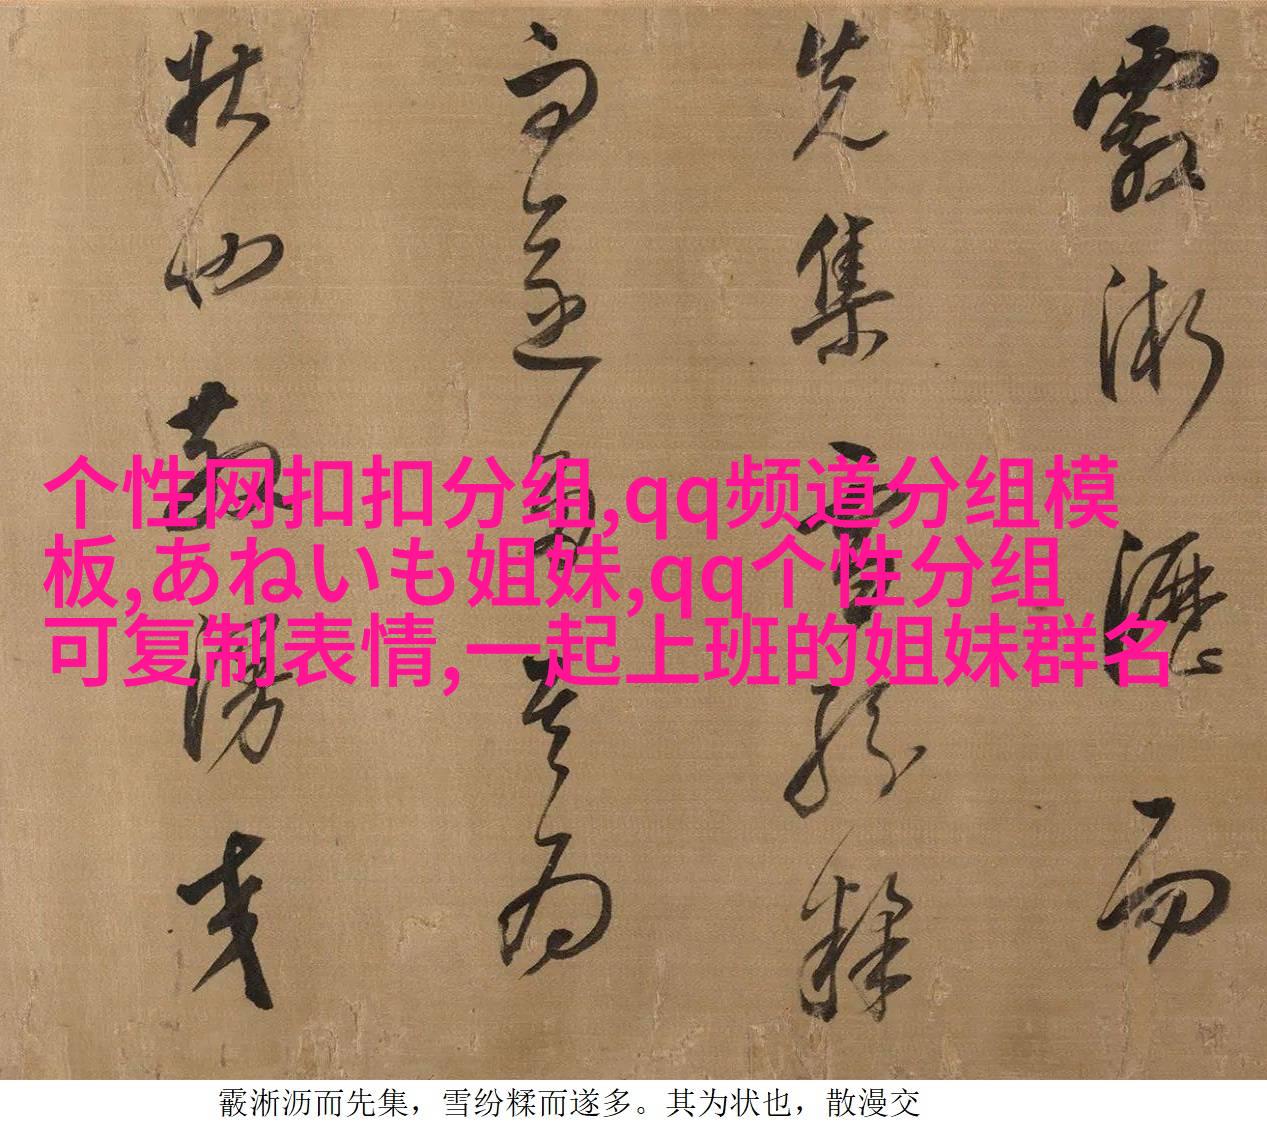 霰淅瀝而
先集雪紛糅
而遂多其為
狀也散漫交
个性网扣扣分组,qq频道分组模
板,あねいも姐妹,qq个性分组
可复制表情,一起上班的姐妹群名
霰淅沥而先集，雪纷糅而遂多。其为状也，散漫交